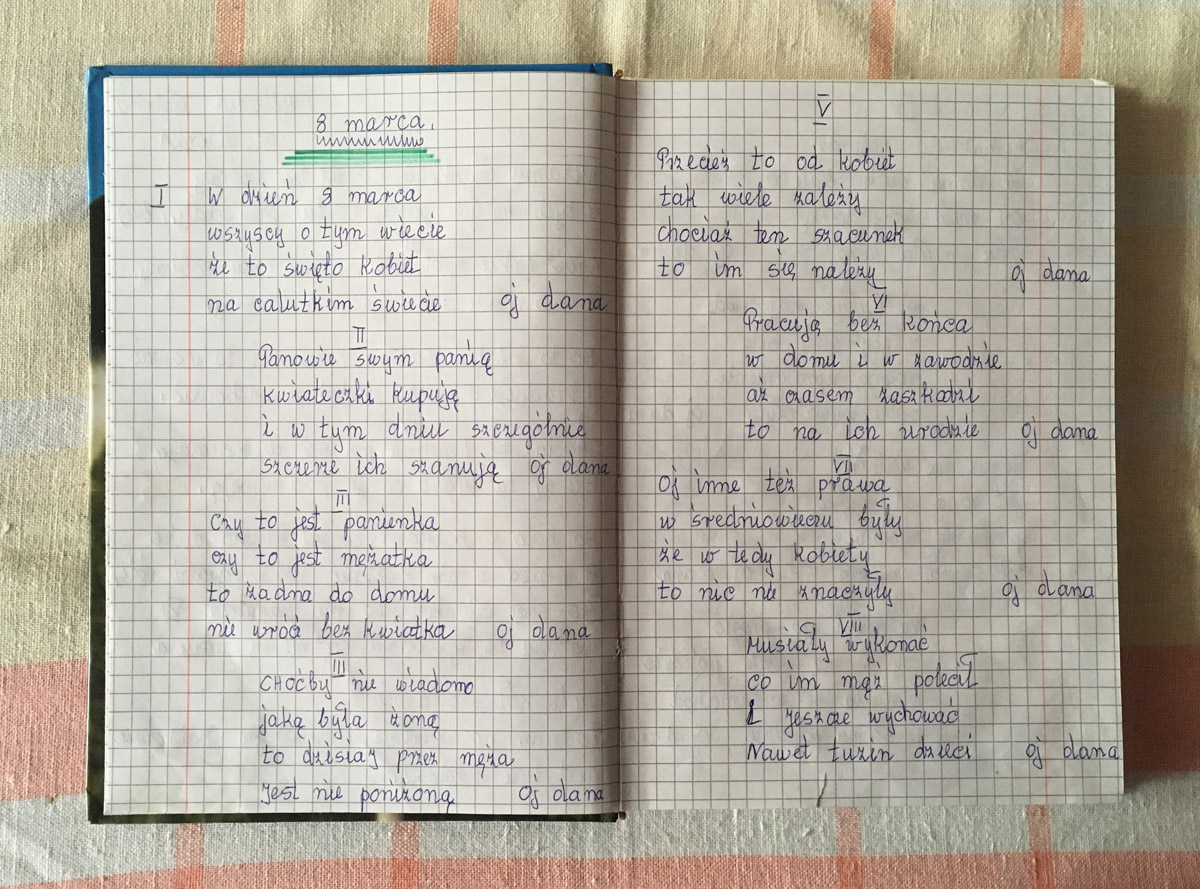 8 marca.
I W dzień 8 marca
wszyscy o tym wiecie
że to święto kobiet
na calutkim świecie oj dana
II
Panowie swym panią
kwiateczki kupują
i w tym dniu szczególnie
szczerze ich szanują oj dana
III
Czy to jest panienka
czy to jest mężatka
to żadna do domu
nie wróci bez kwiatka oj dana
III
choćby nie wiadomo
jaką była żoną
to dzisiaj przez męża
jest nie poniżoną oj dana
V
Przecież to od kobiet
tak wiele zależy
chociaż ten szacunek
to im się należy oj dana
VI
Pracują bez końca
w domu i w zawodzie
aż czasem zaszkodzi
to na ich urodzie oj dana
VII
Oj inne też prawa
w średniowieczu były
że w tedy kobiety
to nic nie znaczyły oj dana
VIII
Musiały wykonać
co im mąż polecił
I jeszcze wychować
Nawet tuzin dzieci oj dana